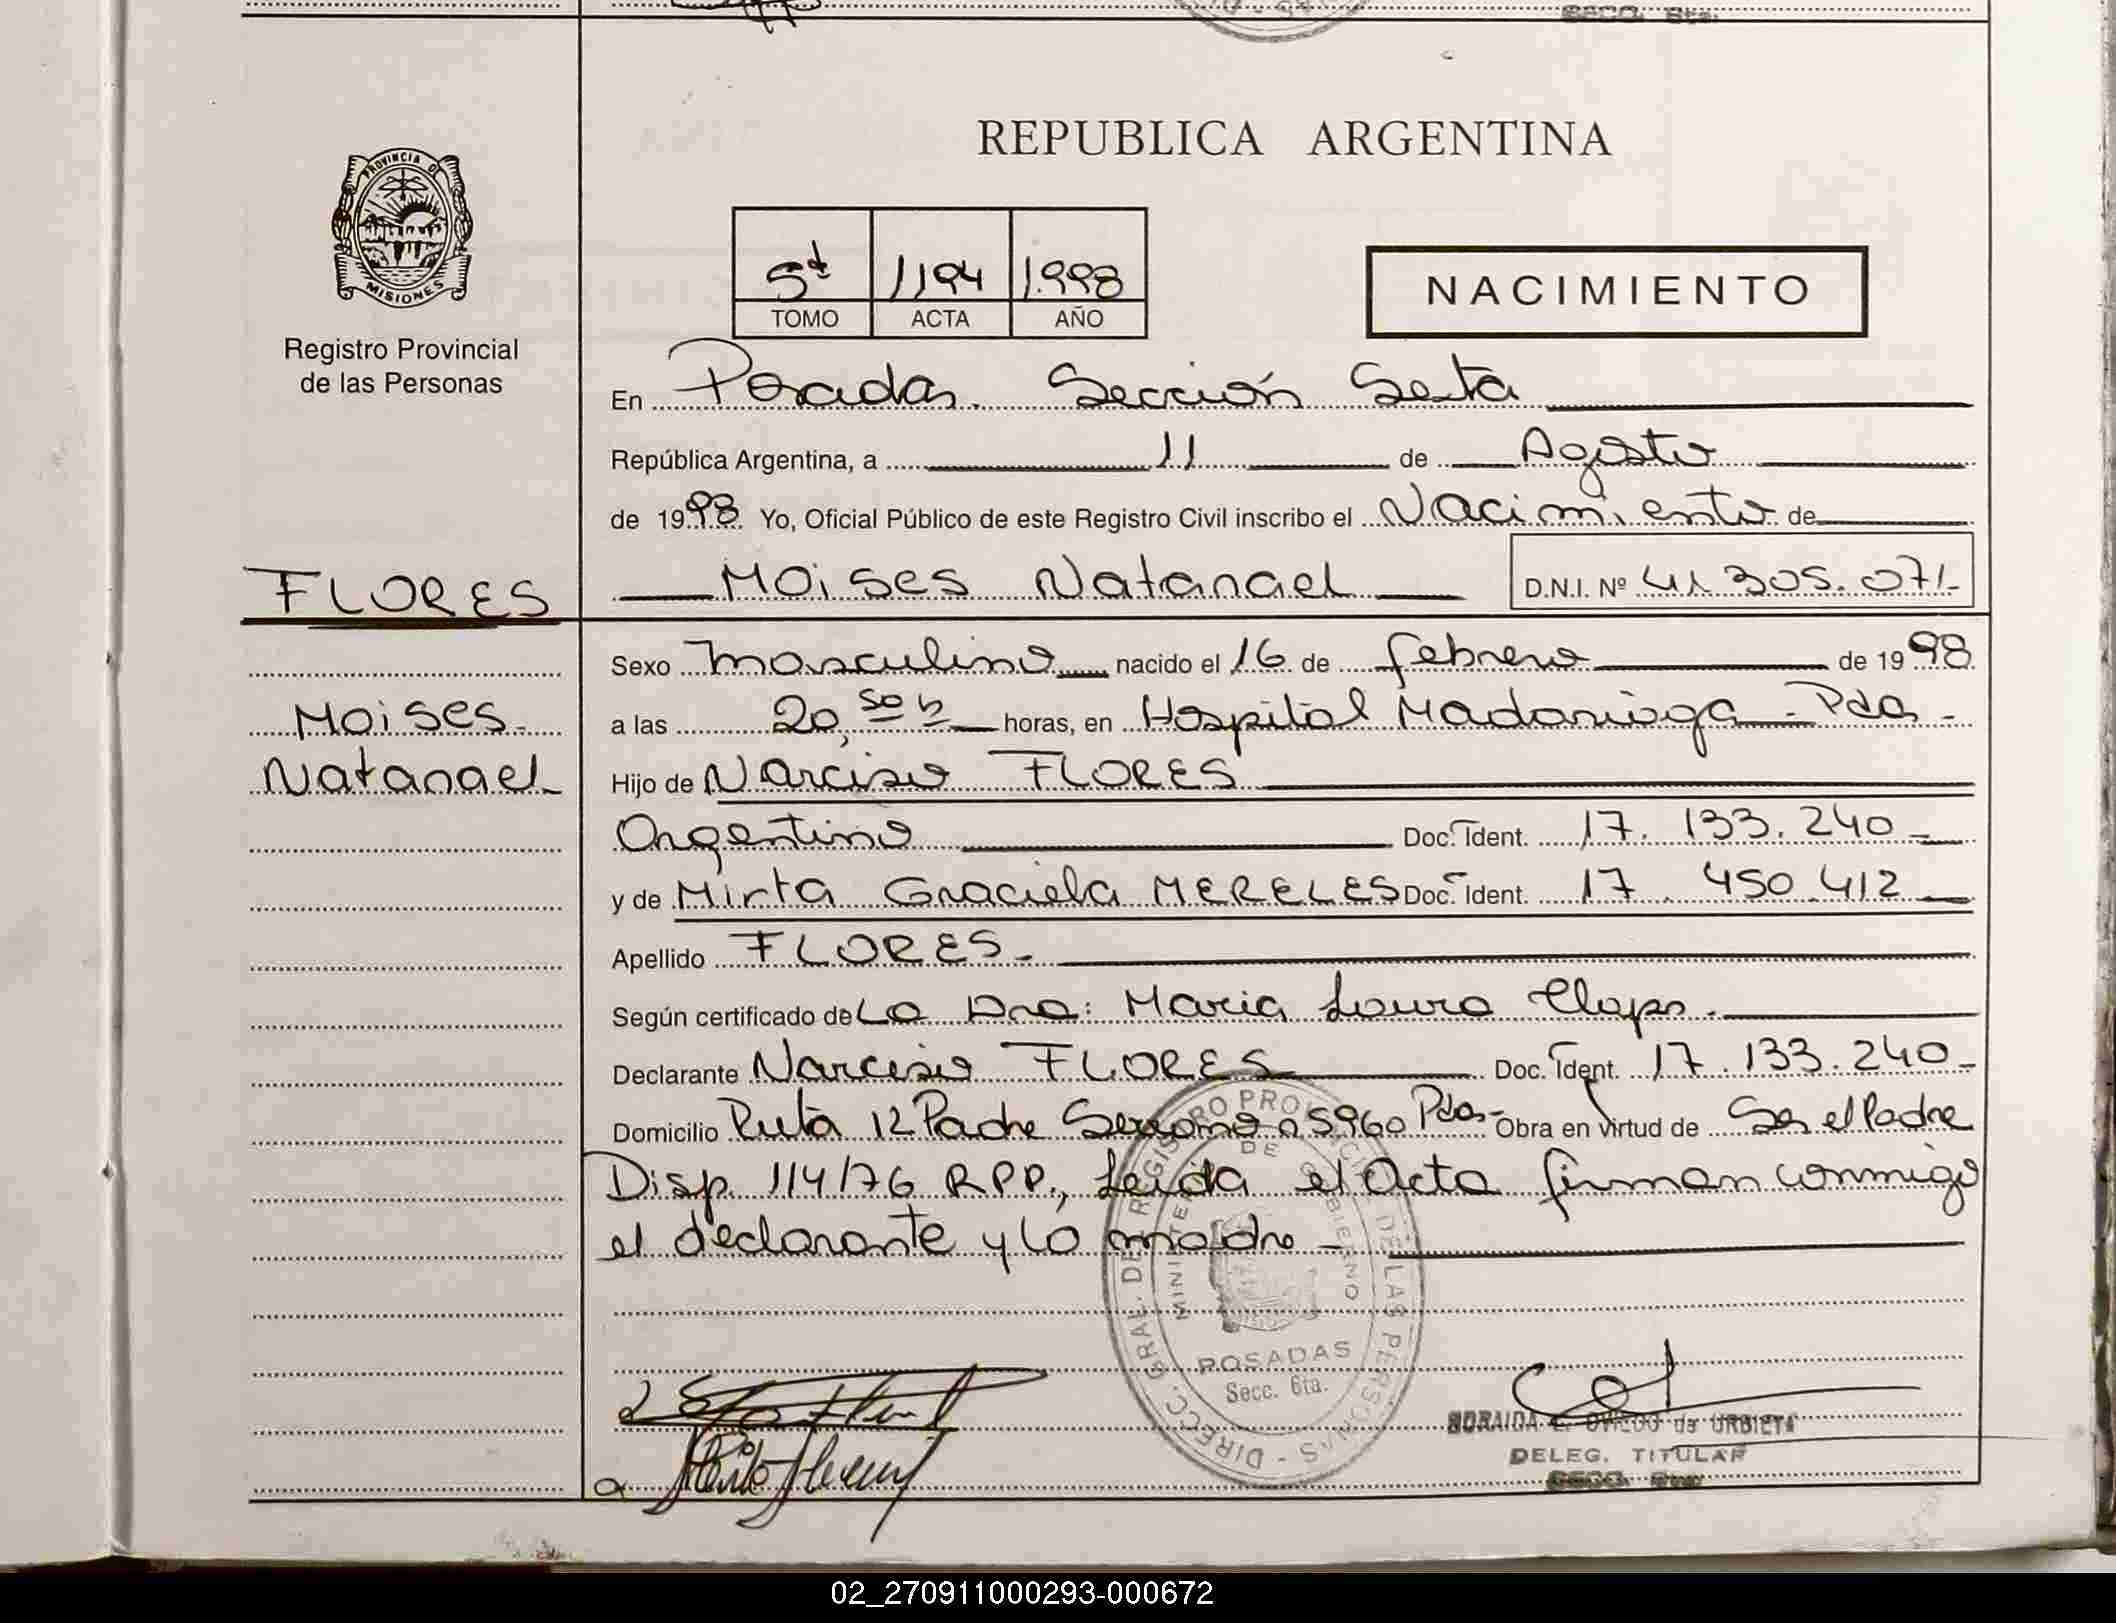 SECC. 6ta.
REPUBLICA ARGENTINA
PROVINCIA DE
MISIONES
Registro Provincial
de las Personas
5º 1194 1.998
TOMO ACTA AÑO
NACIMIENTO
En Posadas. Sección Sexta
República Argentina, a 11 de Agosto
de 1998 Yo, Oficial Público de este Registro Civil inscribo el Nacimiento de
FLORES
Moises Natanael D.N.I. Nº 41.305.071-
Sexo masculino nacido el 16 de febrero de 1998
Moises-
Natanael-
a las 20,50 h horas, en Hospital Madariaga - Pdas-
Hijo de Narciso FLORES
Argentino Doc. Ident. 17.133.240-
y de Mirta Graciela MERELES Doc. Ident. 17.450.412
Apellido FLORES-
Según certificado de La Dra: Maria Laura Claps.
Declarante Narciso FLORES Doc. Ident. 17.133.240-
Domicilio Ruta 12 Padre Serrano 5960 Pdas- Obra en virtud de Ser el Padre
Disp. 114/76 RPP., Leída el Acta firman conmigo
el declarante y la madre -
DIRECC. GRAL. DE REGISTRO PROVINCIAL DE LAS PERSONAS
MINISTERIO DE GOBIERNO
POSADAS
Secc. 6ta.
E. OVIEDO de URBIETA
DELEG. TITULAR
SECC. 6ta.
02_270911000293-000672